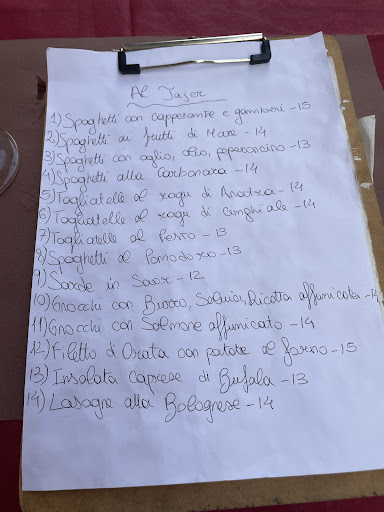 Al Tajer
1) Spaghetti con cappesante e gamberi - 15
2) Spaghetti ai frutti di Mare - 14
3) Spaghetti con aglio, olio, peperoncino - 13
4) Spaghetti alla Carbonara - 14
5) Tagliatelle al ragu di Anatra - 14
6) Tagliatelle al ragu di Cinghiale - 14
7) Tagliatelle al Pesto - 13
8) Spaghetti al Pomodoro - 13
9) Sarde in Saor - 12
10) Gnocchi con Burro, Salvia, Ricotta affumicata - 14
11) Gnocchi con Salmone affumicato - 14
12) Filetto d'Orata con patate al forno - 15
13) Insalata Caprese di Bufala - 13
14) Lasagne alla Bolognese - 14